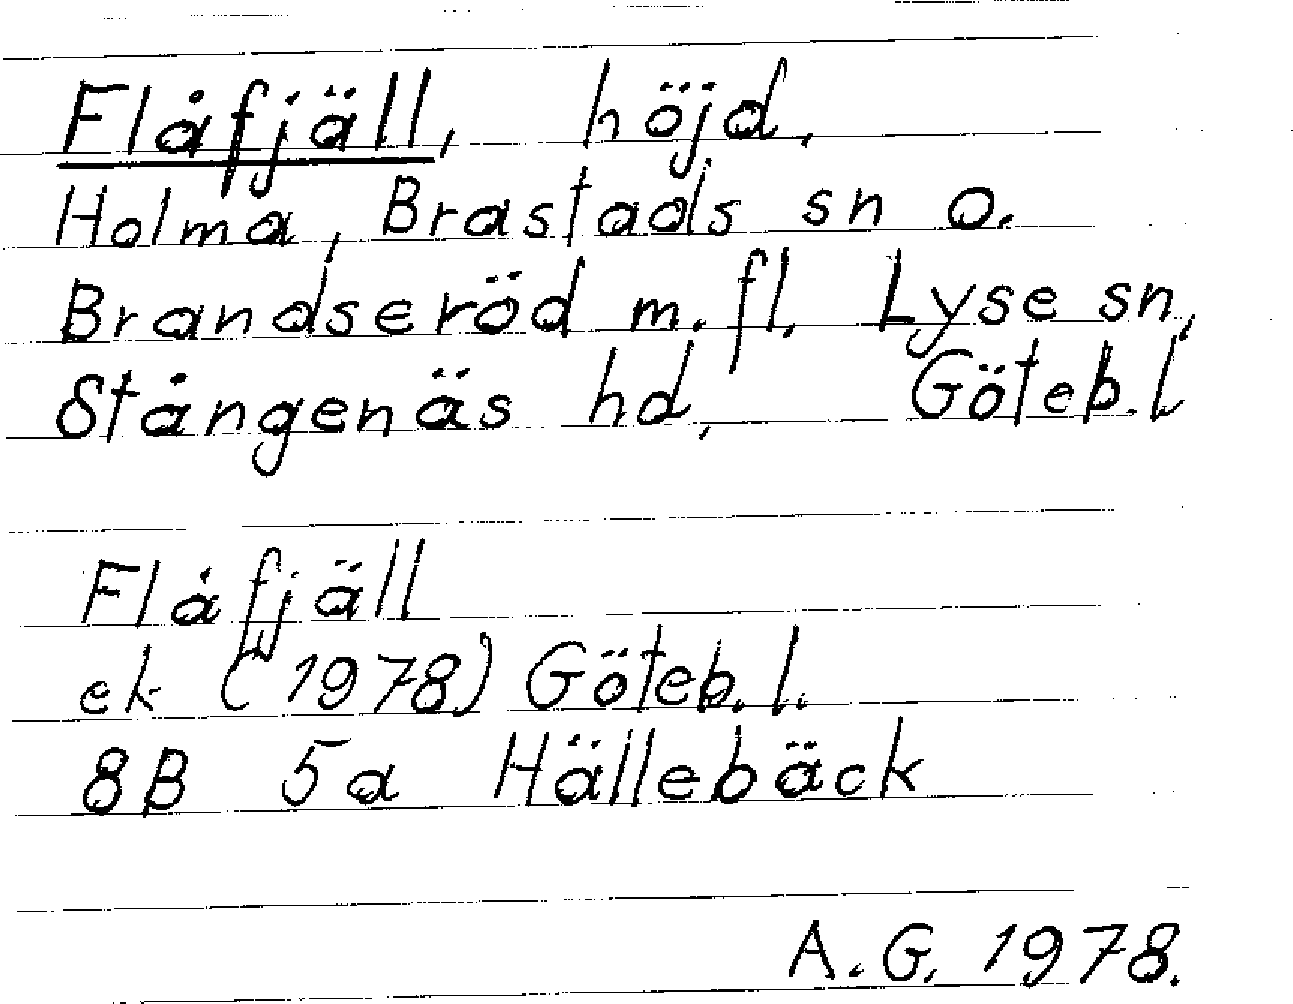 Flåfjäll, höjd,
Holma, Brastads sn o.
Brandseröd m.fl. Lyse sn,
Stångenäs hd, Göteb.l
Flåfjäll
ek (1978) Göteb.l.
8B 5a Hällebäck
A.G. 1978.